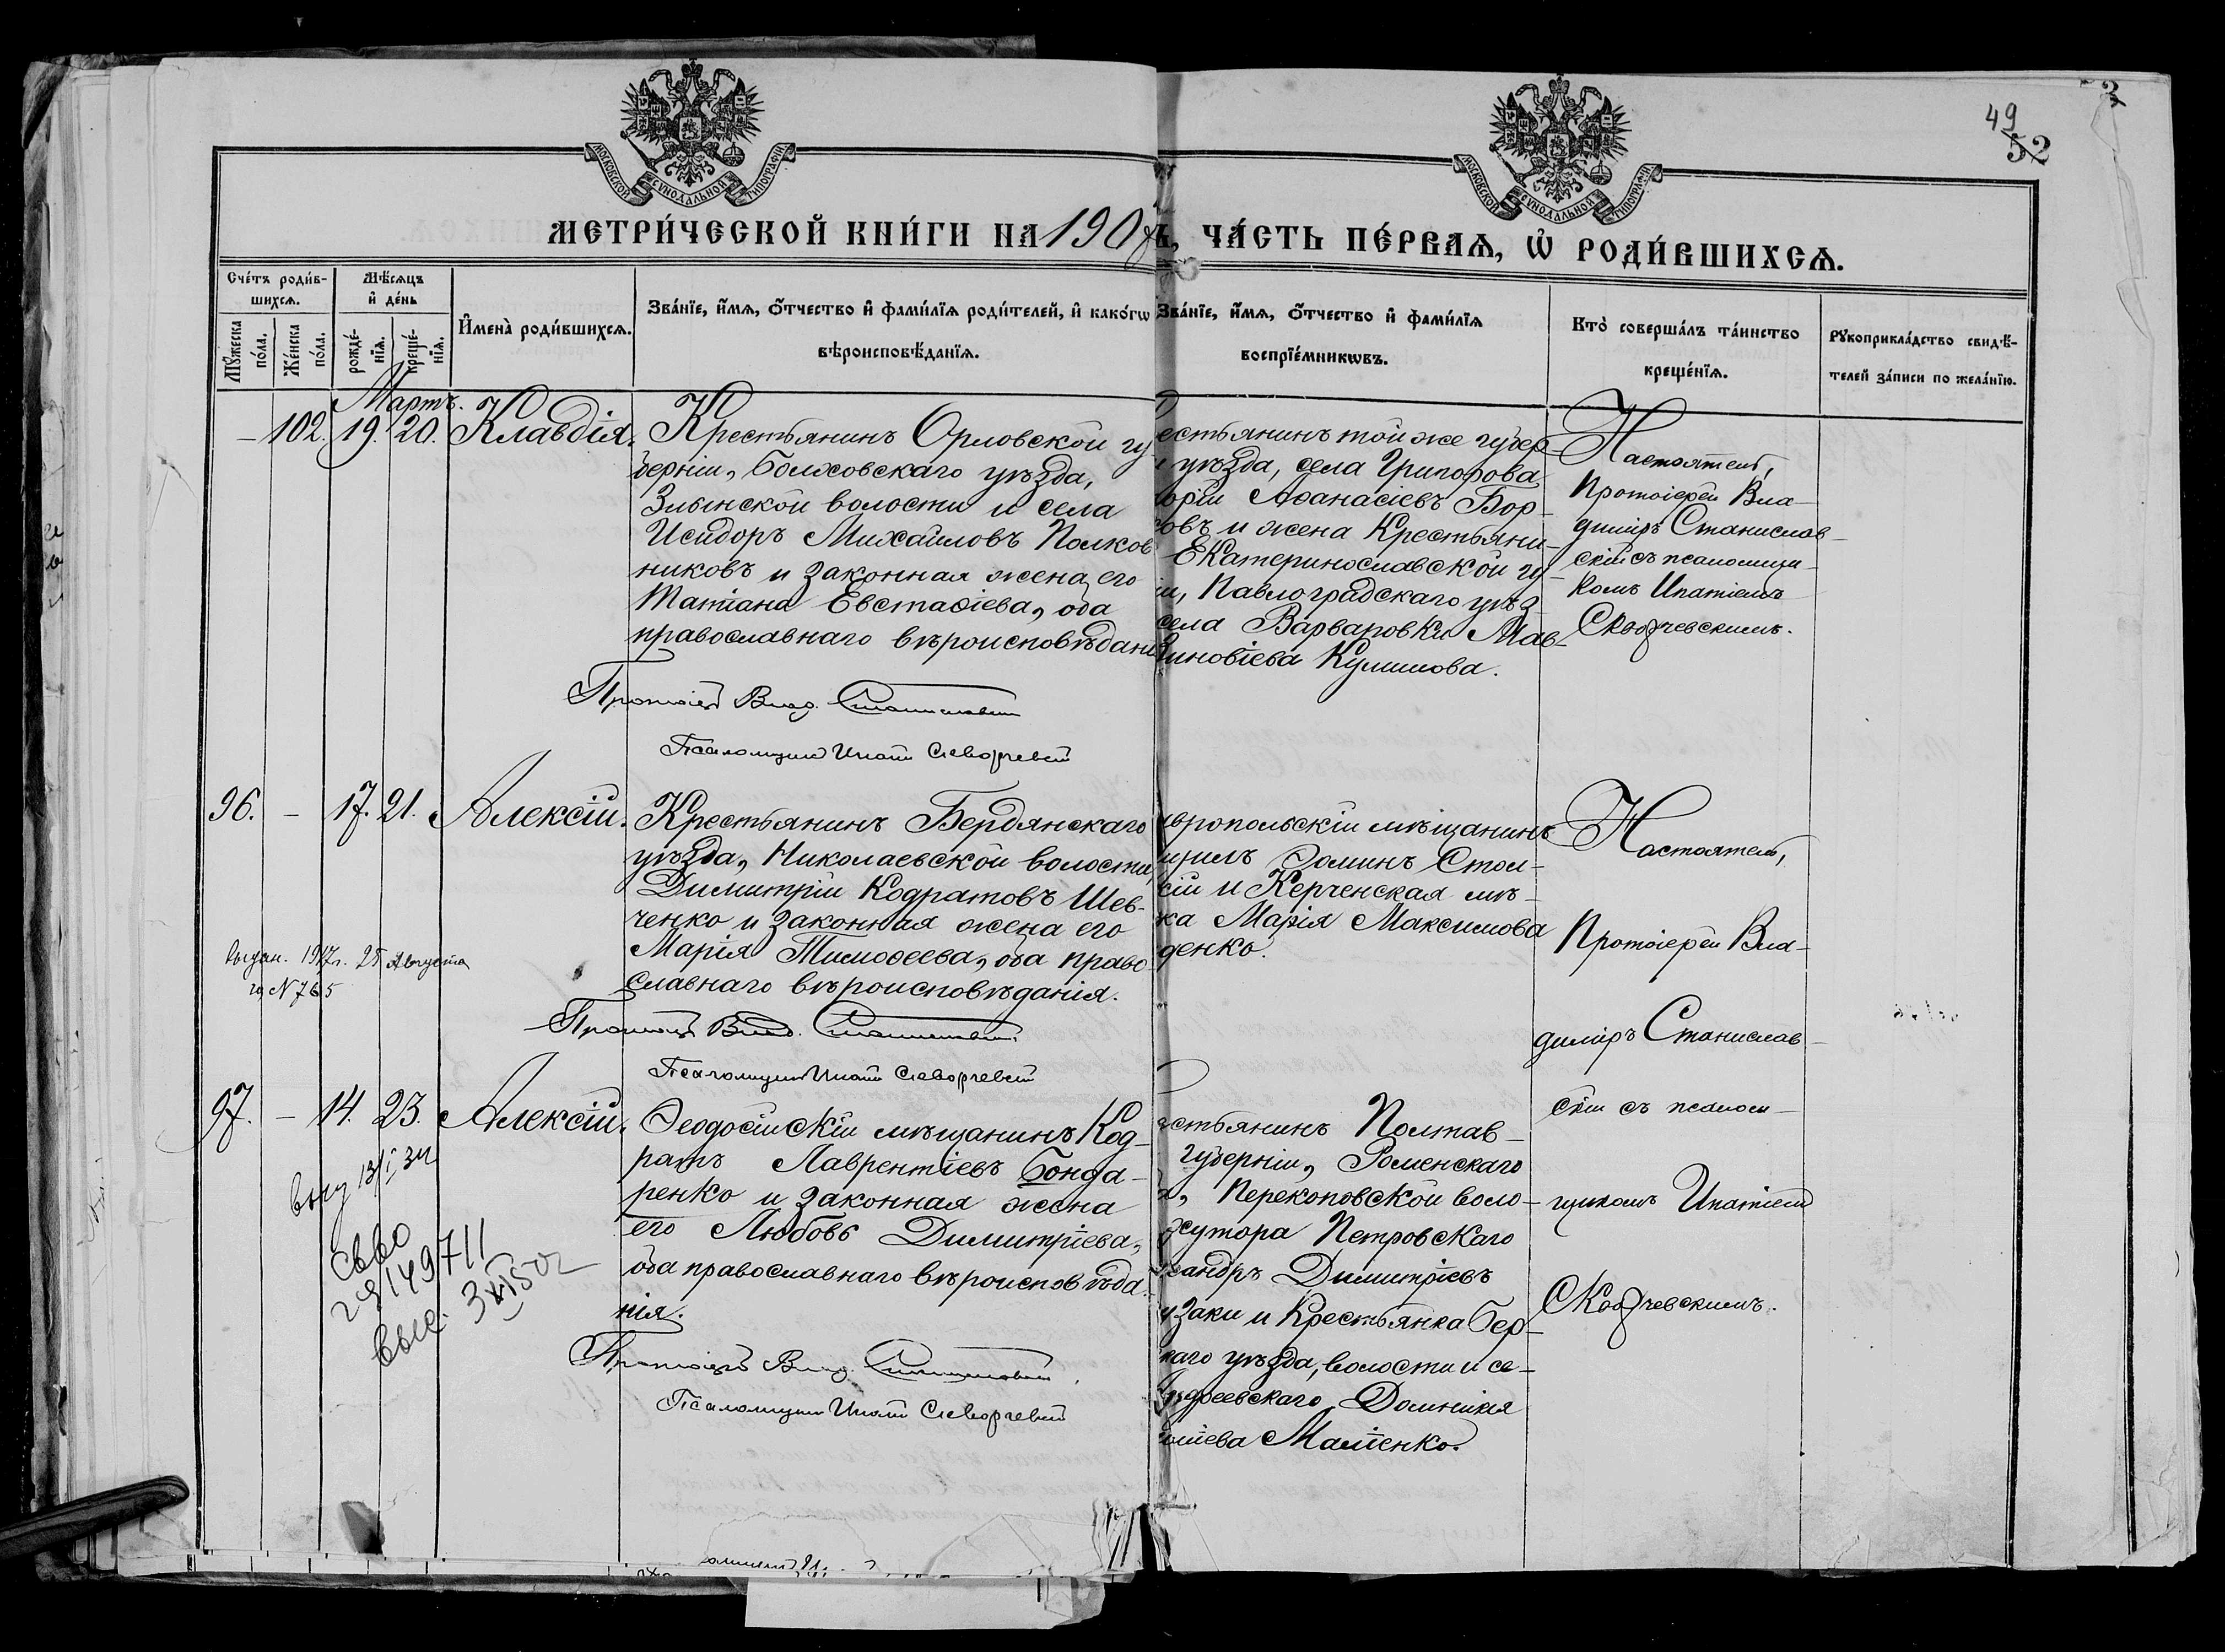 49
52
МОСКОВСКОЙ СУНОДАЛЬНОЙ ТИПОГРАФІИ
МОСКОВСКОЙ СУНОДАЛЬНОЙ ТИПОГРАФІИ
МЕТРИ́ЧЕСКОЙ КНИ́ГИ НА 190
Ъ, ЧА́СТЬ ПЕ́РВАѦ, Ѡ҆ РОДИ́ВШИХСѦ.
Сче́тъ роди́в-
шихсѧ.
Мꙋ́жеска по́ла.
Же́нска по́ла.
Мѣ́сѧцъ
и҆ де́нь
рожде́-
нїѧ.
креще́-
нїѧ.
И҆мена̀ роди́вшихсѧ.
Зва́нїе, и҆́мѧ, ѻ҆́тчество и҆ фами́лїѧ роди́телей, и҆ како́гѡ
вѣроисповѣ́данїѧ.
Зва́нїе, и҆́мѧ, ѻ҆́тчество и҆ фами́лїѧ
воспрїе́мникѡвъ.
Кто̀ соверша́лъ та́инство
креще́нїѧ.
Рꙋкоприкла́дство свидѣ́-
телей за́писи по жела́нїю.
Мартъ.
– 102. 19. 20. Клавдія.
Крестьянинъ Орловской гу-
берніи, Болховскаго уѣзда,
Злынской волости и села
Исидоръ Михайловъ Полков
никовъ и законная жена его
Татіана Евстафіева, оба
православнаго вѣроисповѣдані
Протоіер Влад. Станиславскій
Псаломщикъ Ипатій Скворчевскій
естьянинъ той же губер
и уѣзда, села Григорова
орій Аѳанасіевъ Бор-
овъ и жена Крестьяни-
Екатеринославской гу-
іи, Павлоградскаго уѣз
села Варваровки Мав-
Зиновіева Кулишова.
Настоятель,
Протоіерей Вла-
диміръ Станислав-
скій съ псаломщи-
комъ Ипатіемъ
Скворчевскимъ.
96. – 17. 21. Алексій.
Крестьянинъ Бердянскаго
уѣзда, Николаевской волости,
Димитрій Кодратовъ Шев-
ченко и законная жена его
Марія Тимоѳеева, оба право-
славнаго вѣроисповѣданія.
Протоіер Влад. Станиславскій
Псаломщикъ Ипатій Скворчевскій
выдан. 1917г. 25 Августа
за N 765
вропольскій мѣщанинъ
Ѳоминъ Стол-
кій и Керченская мѣ-
ка Марія Максимова
денко.
Настоятель,
Протоіерей Вла-
диміръ Станислав-
скій съ псалом-
щикомъ Ипатіемъ
Скворчевскимъ.
97. – 14. 23. Алексій.
Ѳеодосійскій мѣщанинъ Код-
ратъ Лаврентіевъ Бонда-
ренко и законная жена
его Любовь Димитріева,
оба православнаго вѣроисповѣда-
нія.
Протоіерей Влад. Станиславскій
Псаломщикъ Ипатій Скворчевскій
естьянинъ Полтав-
губерніи, Роменскаго
а, Перекоповской воло-
хутора Петровскаго
сандръ Димитріевъ
узаки и Крестьянка Бер-
каго уѣзда, волости и се-
Андреевскаго Домникія
Матіенко.
выд 13/I 34
св-во
149711
выс. 3